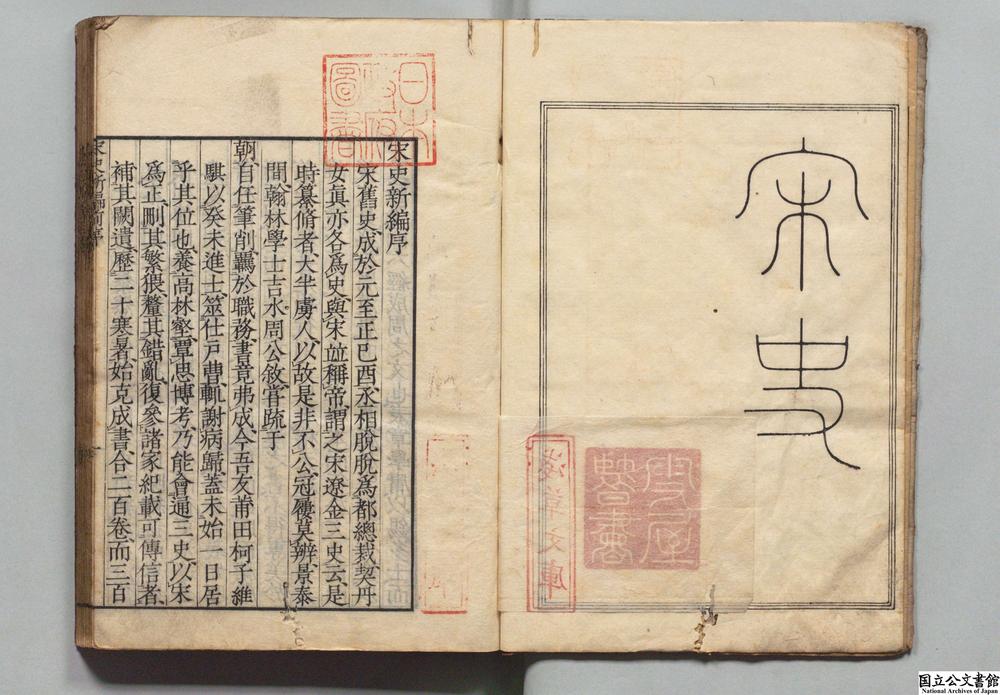 宋史
淺草文庫
日本政府圖書
宋史新編序
宋舊史成於元至正己酉丞相脫脫爲都總裁契丹
女眞亦各爲史與宋竝稱帝謂之宋遼金三史云是
時纂脩者大半虜人以故是非不公冠屨莫辨景泰
間翰林學士吉水周公敘官疏于
朝自任筆削羈於職務書竟弗成今吾友莆田柯子維
騏以癸未進士筮仕戶曹輒謝病歸蓋未始一日居
乎其位也養高林壑覃思博考乃能會通三史以宋
爲正刪其繁猥釐其錯亂復參諸家紀載可傳信者
補其闕遺歷二十寒暑始克成書合二百卷而三百
宋史新編序
国立公文書館
National Archives of Japan